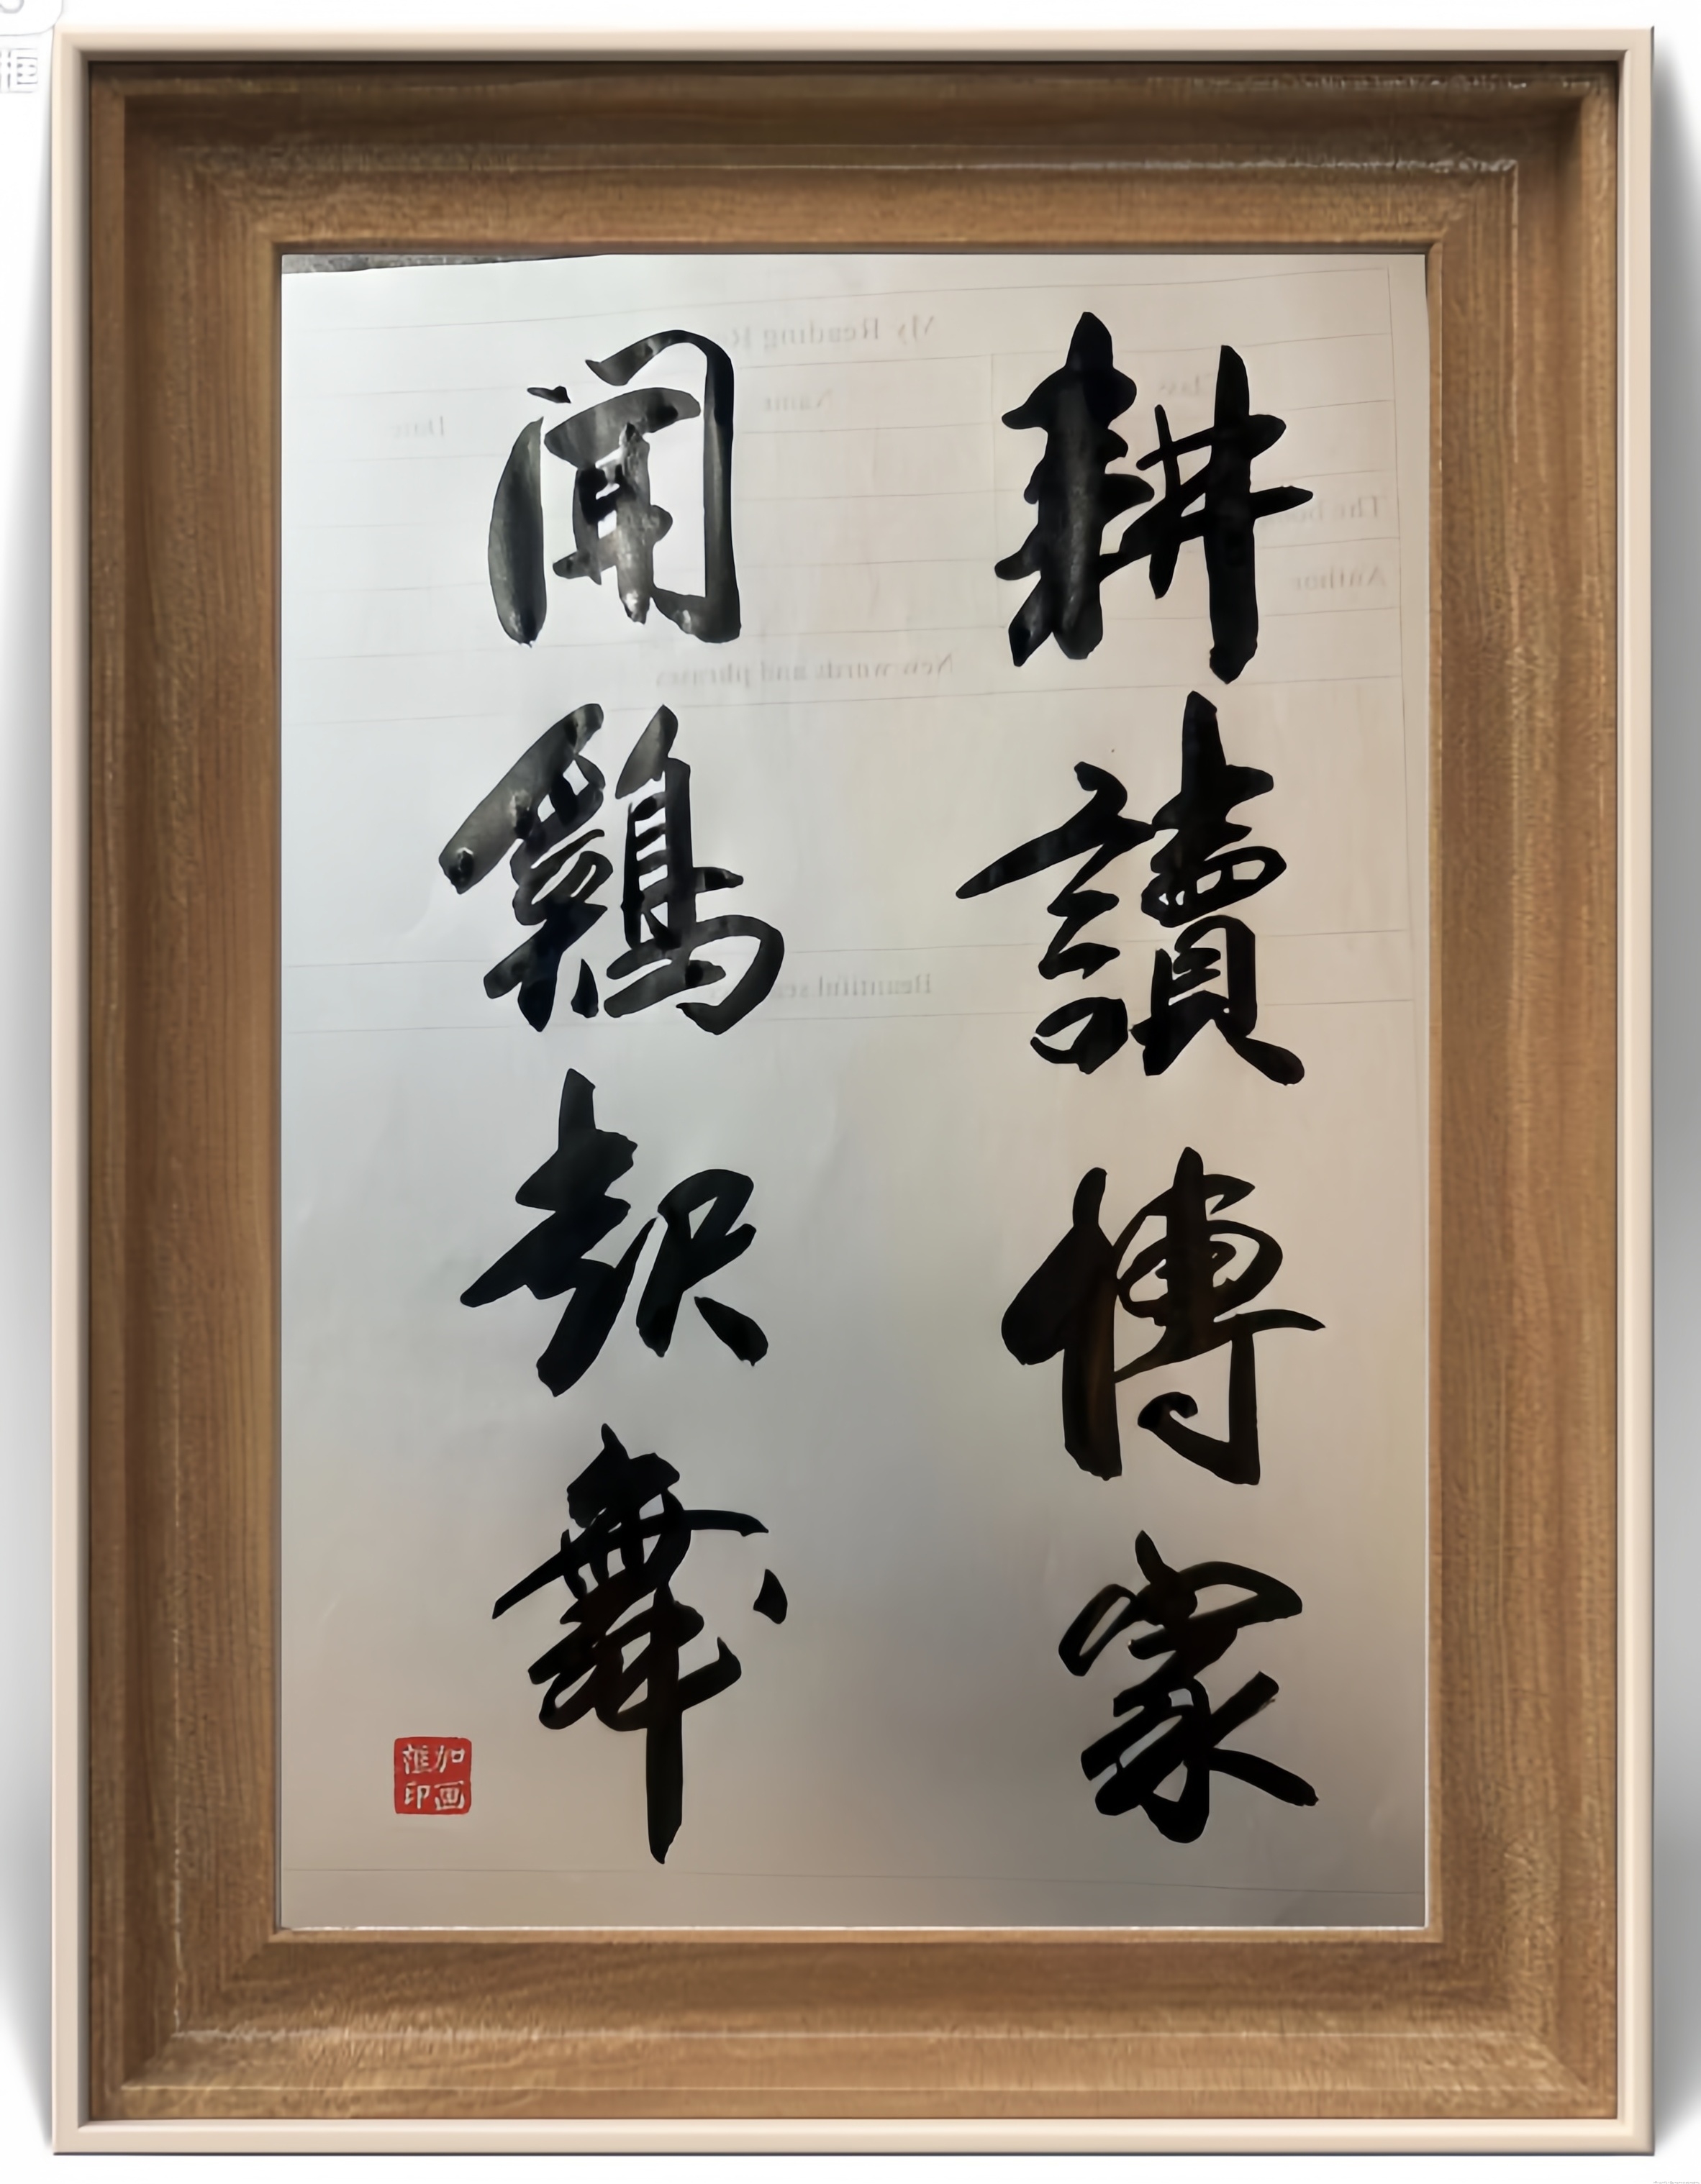 耕讀傳家
聞鷄起舞
加画
框印
框
My Reading
Class
Name
Date
Author
New words and phrases
Beautiful